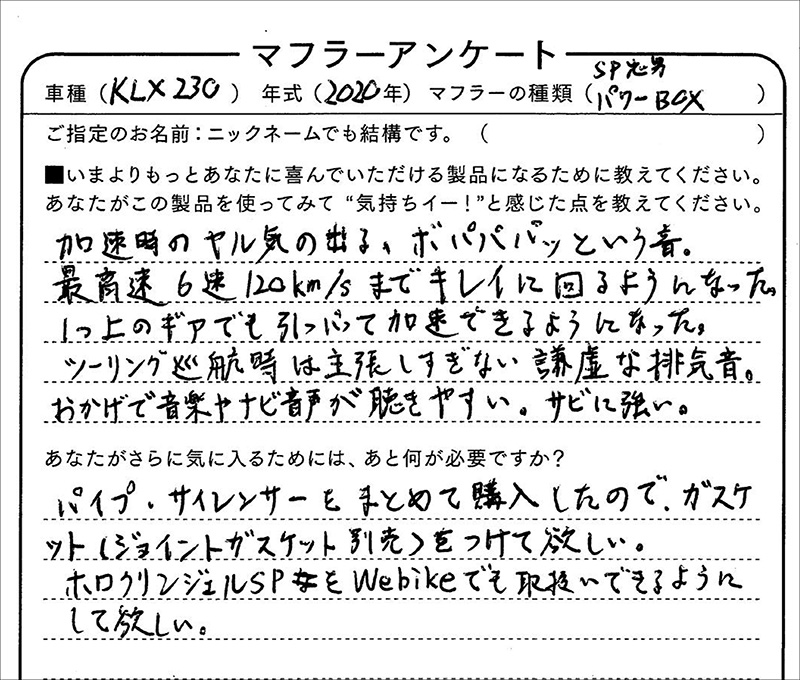 マフラーアンケート
車種（KLX230） 年式（2020年） マフラーの種類（SP忠男 パワーBOX）
ご指定のお名前：ニックネームでも結構です。（ ）
■いまよりもっとあなたに喜んでいただける製品になるために教えてください。
あなたがこの製品を使ってみて“気持ちイー！”と感じた点を教えてください。
加速時のヤル気の出る、ボパパパッという音。
最高速6速120km/sまでキレイに回るようになった。
1つ上のギアでも引っぱって加速できるようになった。
ツーリング巡航時は主張しすぎない謙虚な排気音。
おかげで音楽やナビ音声が聴きやすい。サビに強い。
あなたがさらに気に入るためには、あと何が必要ですか？
パイプ・サイレンサーをまとめて購入したので、ガスケ
ット（ジョイントガスケット別売）をつけて欲しい。
ホロクリンジェルSPをWebikeでも取扱いできるように
して欲しい。